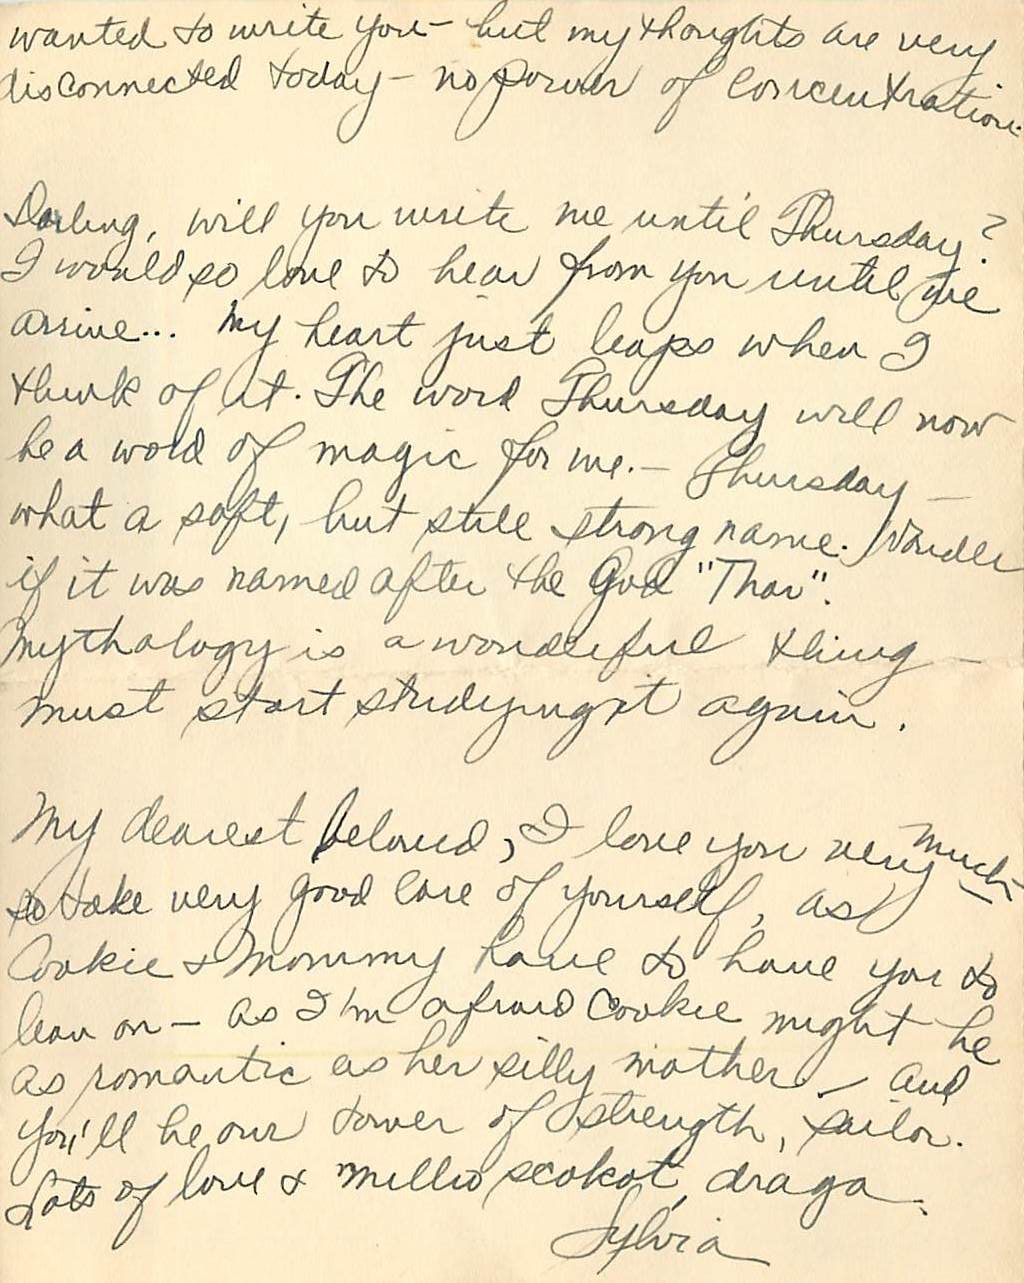 wanted to write you – but my thoughts are very
disconnected today – no power of concentration.
Darling, will you write me until Thursday?
I would so love to hear from you until we
arrive... My heart just leaps when I
think of it. The word Thursday will now
be a word of magic for me. – Thursday –
what a soft, but still strong name. Wonder
if it was named after the God "Thor".
Mythology is a wonderful thing –
must start studying it again.
My dearest beloved, I love you very much
so take very good care of yourself, as
Cookie & Mommy have to have you to
lean on – as I'm afraid Cookie might be
as romantic as her silly mother – and
you'll be our tower of strength, sailor.
Lots of love & millio scokot, draga.
Sylvia